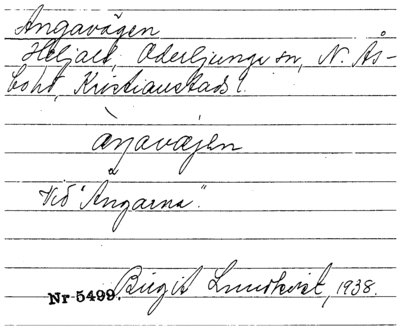 Ängavägen
Heljalt, Oderljunga sn, N. Ås-
bohd, Kristianstads l.
àŋavægen
Vid "Ängarna".
Nr 5499. Birgit Lundkvist, 1938.